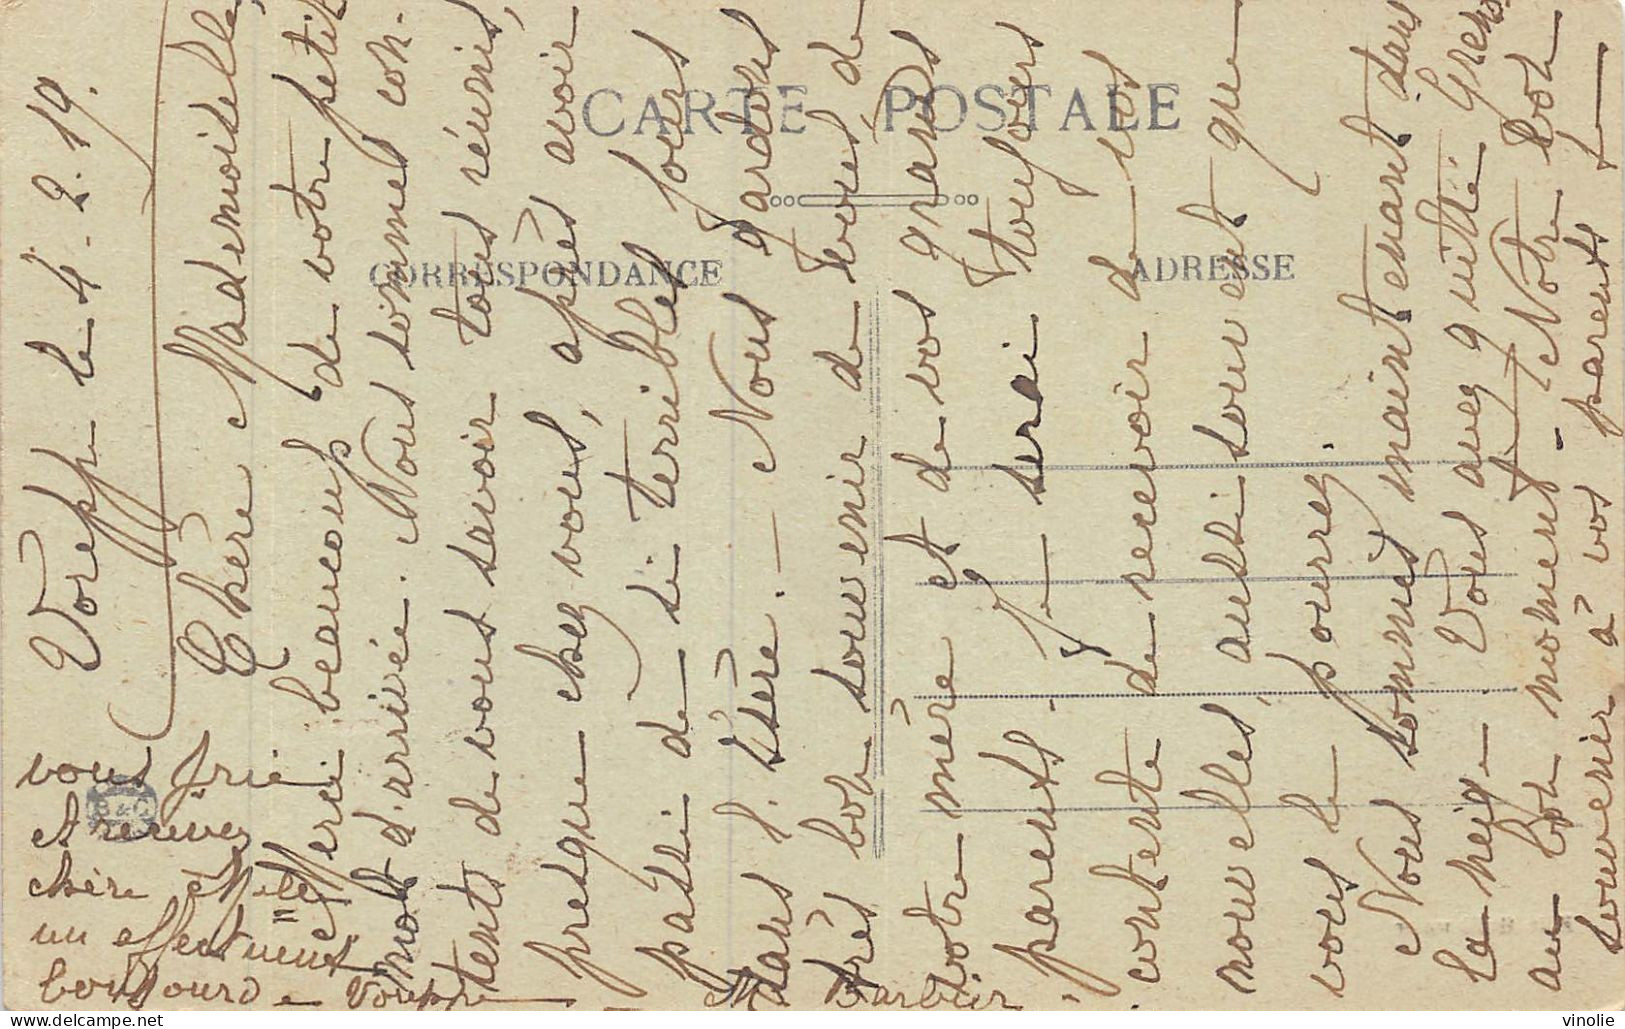 CARTE POSTALE
CORRESPONDANCE
ADRESSE
Voreppe le 4-2-19.
Chère Mademoiselle,
Merci beaucoup de votre petit
mot d'arrivée. Nous sommes con-
tents de vous savoir tous réunis,
presque chez vous, après avoir
passé de si terribles jours
dans l'Isère. — Nous gardons
très bon souvenir de vous, de
votre mère et de vos grands
parents. Je serai toujours
contente de recevoir de vos
nouvelles, aussi souvent que
vous le pourrez.
Nous sommes maintenant dans
la neige. Vous avez quitté
au bon moment - Notre bon
souvenir à vos parents
vous
et recevez
chère Melle
un affectueux
bonjour Voreppe
B & C
vinolie